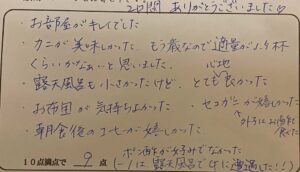 2日間 ありがとうございました♡
・お部屋がキレイでした
・カニが美味しかった。もう歳なので適量が小1杯
くらいかなぁ〜と思いました
・露天風呂も小さかったけど、とても良かった
心地
・お布団が気持ちよかった ・セコガニが嬉しかった
外子にお酒を
・朝食後のコーヒーが嬉しかった
10点満点で 9 点 ポン酢が好みでなかった
(−1は 露天風呂で牛に遭遇した!!)